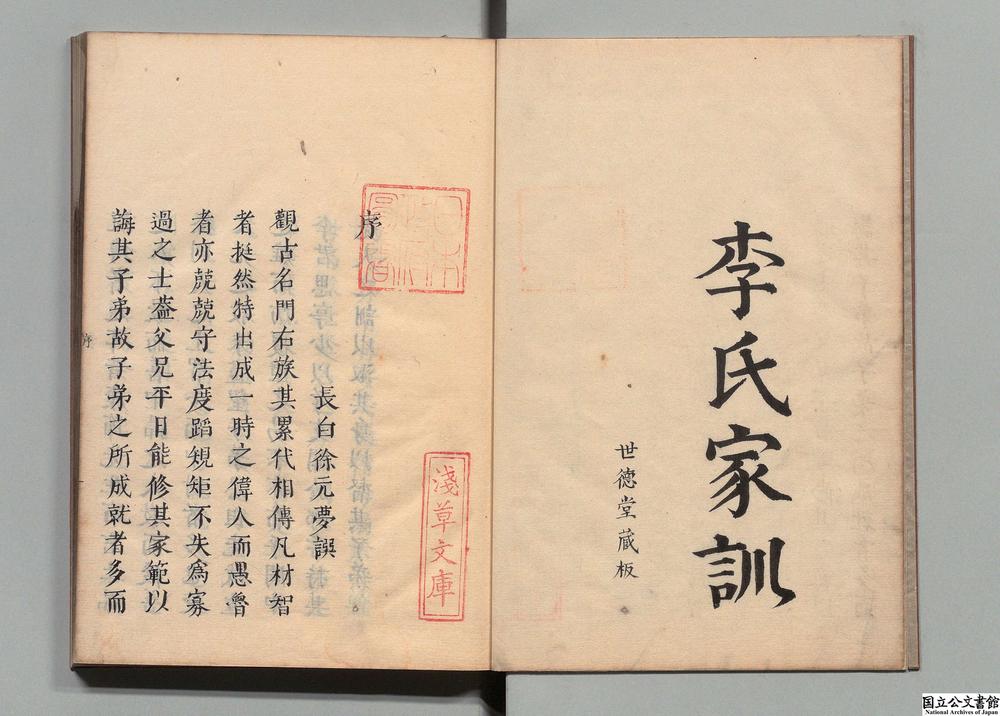 李氏家訓
世德堂藏板
序
長白徐元夢譔
觀古名門右族其累代相傳凡材智
者挺然特出成一時之偉人而愚魯
者亦兢兢守法度蹈規矩不失爲寡
過之士葢父兄平日能修其家範以
誨其子弟故子弟之所成就者多而
序
日本
政府
圖書
淺草文庫
国立公文書館
National Archives of Japan